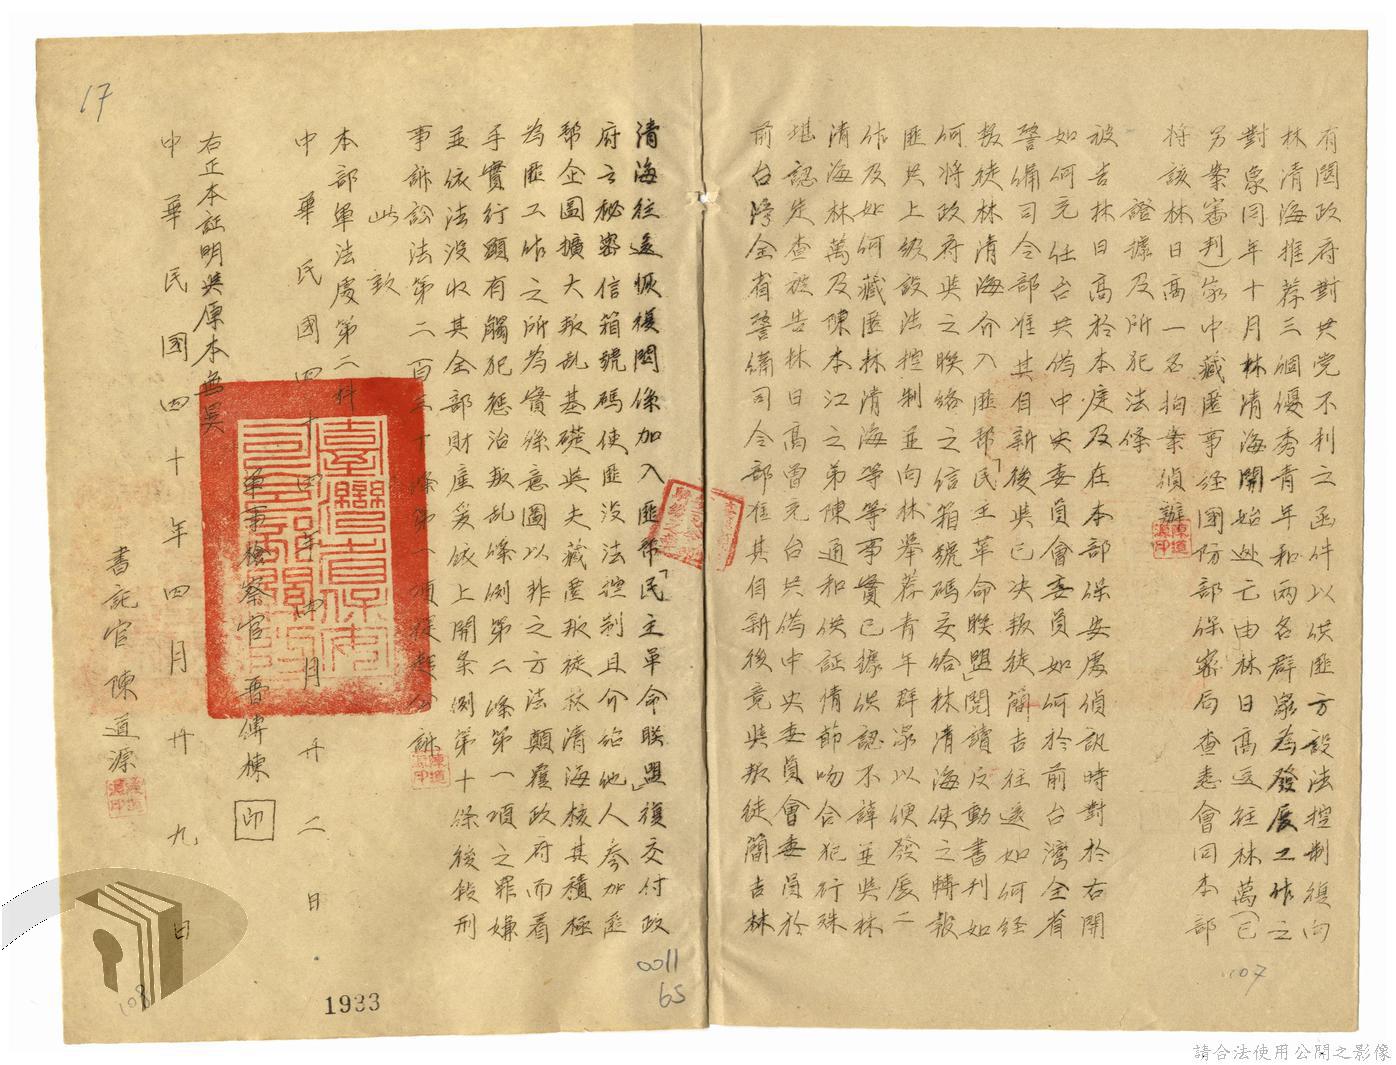 有関政府對共党不利之函件以供匪方設法控制復向
林清海推荐三個優秀青年和两名群眾為發展工作之
對象同年十月林清海開始逃亡由林日高逕往林萬(已
另案審判)家中藏匿事经國防部保密局查悉會同本部
将該林日高一名拘案偵辦
證據及所犯法條
被告林日高於本庭及在本部保安處偵訊時對於右開
如何充任台共偽中央委員會委員如何於前台灣全省
警備司令部准其自新後與已决叛徒簡吉往还如何经
叛徒林清海介入匪帮「民主革命联盟」閱讀反動書刊如
何将政府與之联络之信箱號碼交给林清海使之轉報
匪共上级設法控制並向林举荐青年群眾以便發展工
作及如何藏匿林清海等等事實已據供認不諱並與林
清海林萬及陳本江之弟陳通和供証情節吻合犯行殊
堪認定查被告林日高曾充台共偽中央委員會委員於
前台灣全省警備司令部准其自新後竟與叛徒簡吉林
清海往返恢復関係加入匪帮「民主革命联盟」復交付政
府之秘密信箱號碼使匪设法控制且介绍他人参加匪
帮企圖擴大叛乱基礎與夫藏匿叛徒林清海核其積極
為匪工作之所為實係意圖以非之方法顛覆政府而着
手實行顯有觸犯懲治叛乱條例第二條第一項之罪嫌
並依法没收其全部財產爰依上開条例第十條後段刑
事訴訟法第二百三十條第一項提起公訴
此致
本部軍法處第二科
中華民國四十四年四月廿二日
軍事檢察官 晋傳棟 印
右正本証明與原本無異
中華民國四十年四月廿九日
書記官 陳道源
17
107
108
0011
65
1933
請合法使用公開之影像